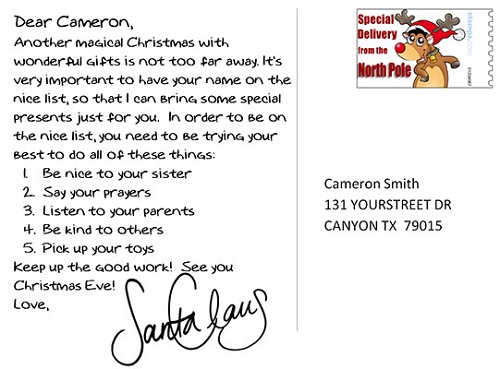 Dear Cameron,
Another magical Christmas with
wonderful gifts is not too far away. It's
very important to have your name on the
nice list, so that I can bring some special
presents just for you. In order to be on
the nice list, you need to be trying your
best to do all of these things:
1. Be nice to your sister
2. Say your prayers
3. Listen to your parents
4. Be kind to others
5. Pick up your toys
Keep up the good work! See you
Christmas Eve!
Love,
Santa Claus
Special
Delivery
from the
North Pole
stamps.com
Cameron Smith
131 YOURSTREET DR
CANYON TX 79015